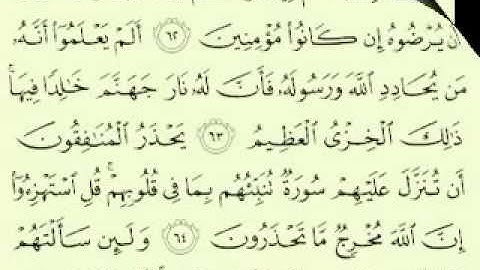 أَن يُرْضُوهُ إِن كَانُوا۟ مُؤْمِنِينَ ٦٢ أَلَمْ يَعْلَمُوٓا۟ أَنَّهُۥ
مَن يُحَادِدِ ٱللَّهَ وَرَسُولَهُۥ فَأَنَّ لَهُۥ نَارَ جَهَنَّمَ خَـٰلِدًا فِيهَا ۚ
ذَٰلِكَ ٱلْخِزْىُ ٱلْعَظِيمُ ٦٣ يَحْذَرُ ٱلْمُنَـٰفِقُونَ
أَن تُنَزَّلَ عَلَيْهِمْ سُورَةٌ تُنَبِّئُهُم بِمَا فِى قُلُوبِهِمْ ۚ قُلِ ٱسْتَهْزِءُوٓا۟
إِنَّ ٱللَّهَ مُخْرِجٌ مَّا تَحْذَرُونَ ٦٤ وَلَئِن سَأَلْتَهُمْ